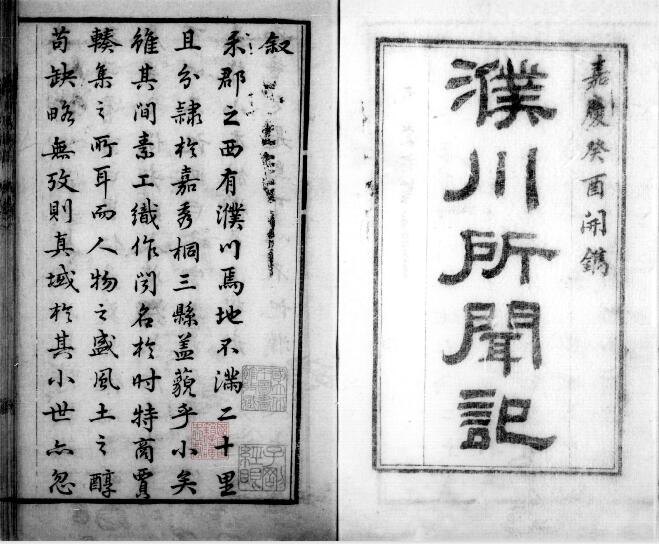 嘉慶癸酉開鐫
濮川所聞記
叙
禾郡之西有濮川焉地不滿二十里
且分隸於嘉秀桐三縣蓋藐乎小矣
維其間素工織作閴名於时特商賈
輳集之所耳而人物之盛風土之醇
苟缺略無攷則真域於其小世亦忽